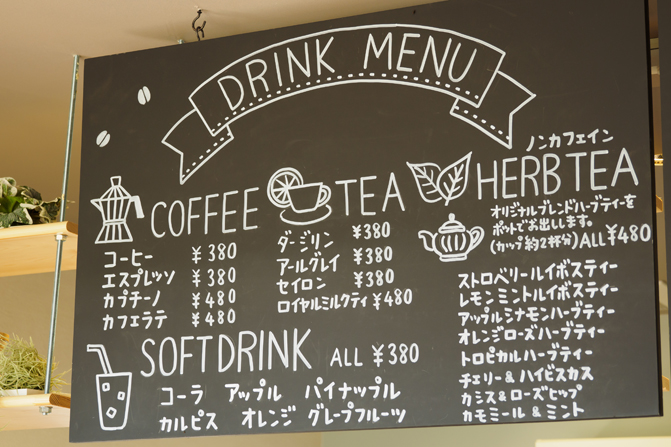 DRINK MENU
COFFEE
コーヒー ¥380
エスプレッソ ¥380
カプチーノ ¥480
カフェラテ ¥480
TEA
ダージリン ¥380
アールグレイ ¥380
セイロン ¥380
ロイヤルミルクティ ¥480
ノンカフェイン
HERB TEA
オリジナルブレンドハーブティーを
ポットでお出しします。
(カップ約2杯分) ALL ¥480
ストロベリールイボスティー
レモンミントルイボスティー
アップルシナモンハーブティー
オレンジローズハーブティー
トロピカルハーブティー
チェリー&ハイビスカス
カシス&ローズヒップ
カモミール&ミント
SOFT DRINK ALL ¥380
コーラ アップル パイナップル
カルピス オレンジ グレープフルーツ